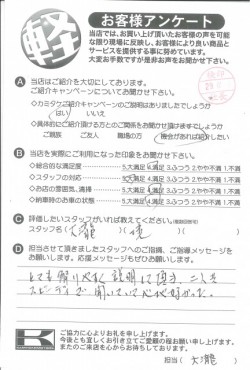 軽
お客様アンケート
当店では、お買い上げ頂いたお客様の声を可能
な限り現場に反映し、お客様により良い商品と
サービスを提供する事に努めています。
大変お手数ですが是非お声をお聞かせ下さい。
A 当店はご紹介を大切にしております。
ご紹介キャンペーンについてお聞かせ下さい。
◇カミタケご紹介キャンペーンのご説明はありましたでしょうか
はい いいえ
◇具体的にご紹介頂ける方とのご関係をお聞かせ頂けますでしょうか
ご親族 ご友人 職場の方 機会があれば紹介したい
B 当店を実際にご利用になった印象をお聞かせ下さい。
◇総合的な満足度 5.大満足 4.満足 3.ふつう 2.やや不満 1.不満
◇スタッフの対応 5.大満足 4.満足 3.ふつう 2.やや不満 1.不満
◇お店の雰囲気、清掃 5.大満足 4.満足 3.ふつう 2.やや不満 1.不満
◇納車時のお車の状態 5.大満足 4.満足 3.ふつう 2.やや不満 1.不満
C 評価したいスタッフがいれば教えてください。
スタッフ名( 大瀧 )( )
D 担当させて頂きましたスタッフへのご指摘、ご指導メッセージを
お願いします。応援メッセージもぜひお願いします。
とても解りやすく説明して頂き
スピーディで 心地好かった。
K
ご協力に心よりお礼を申し上げます。
今後とも宜しくお引き立てご愛顧の程お願い申し上げます。
またのご来店を心からお待ちしております。
担当( 大瀧 )